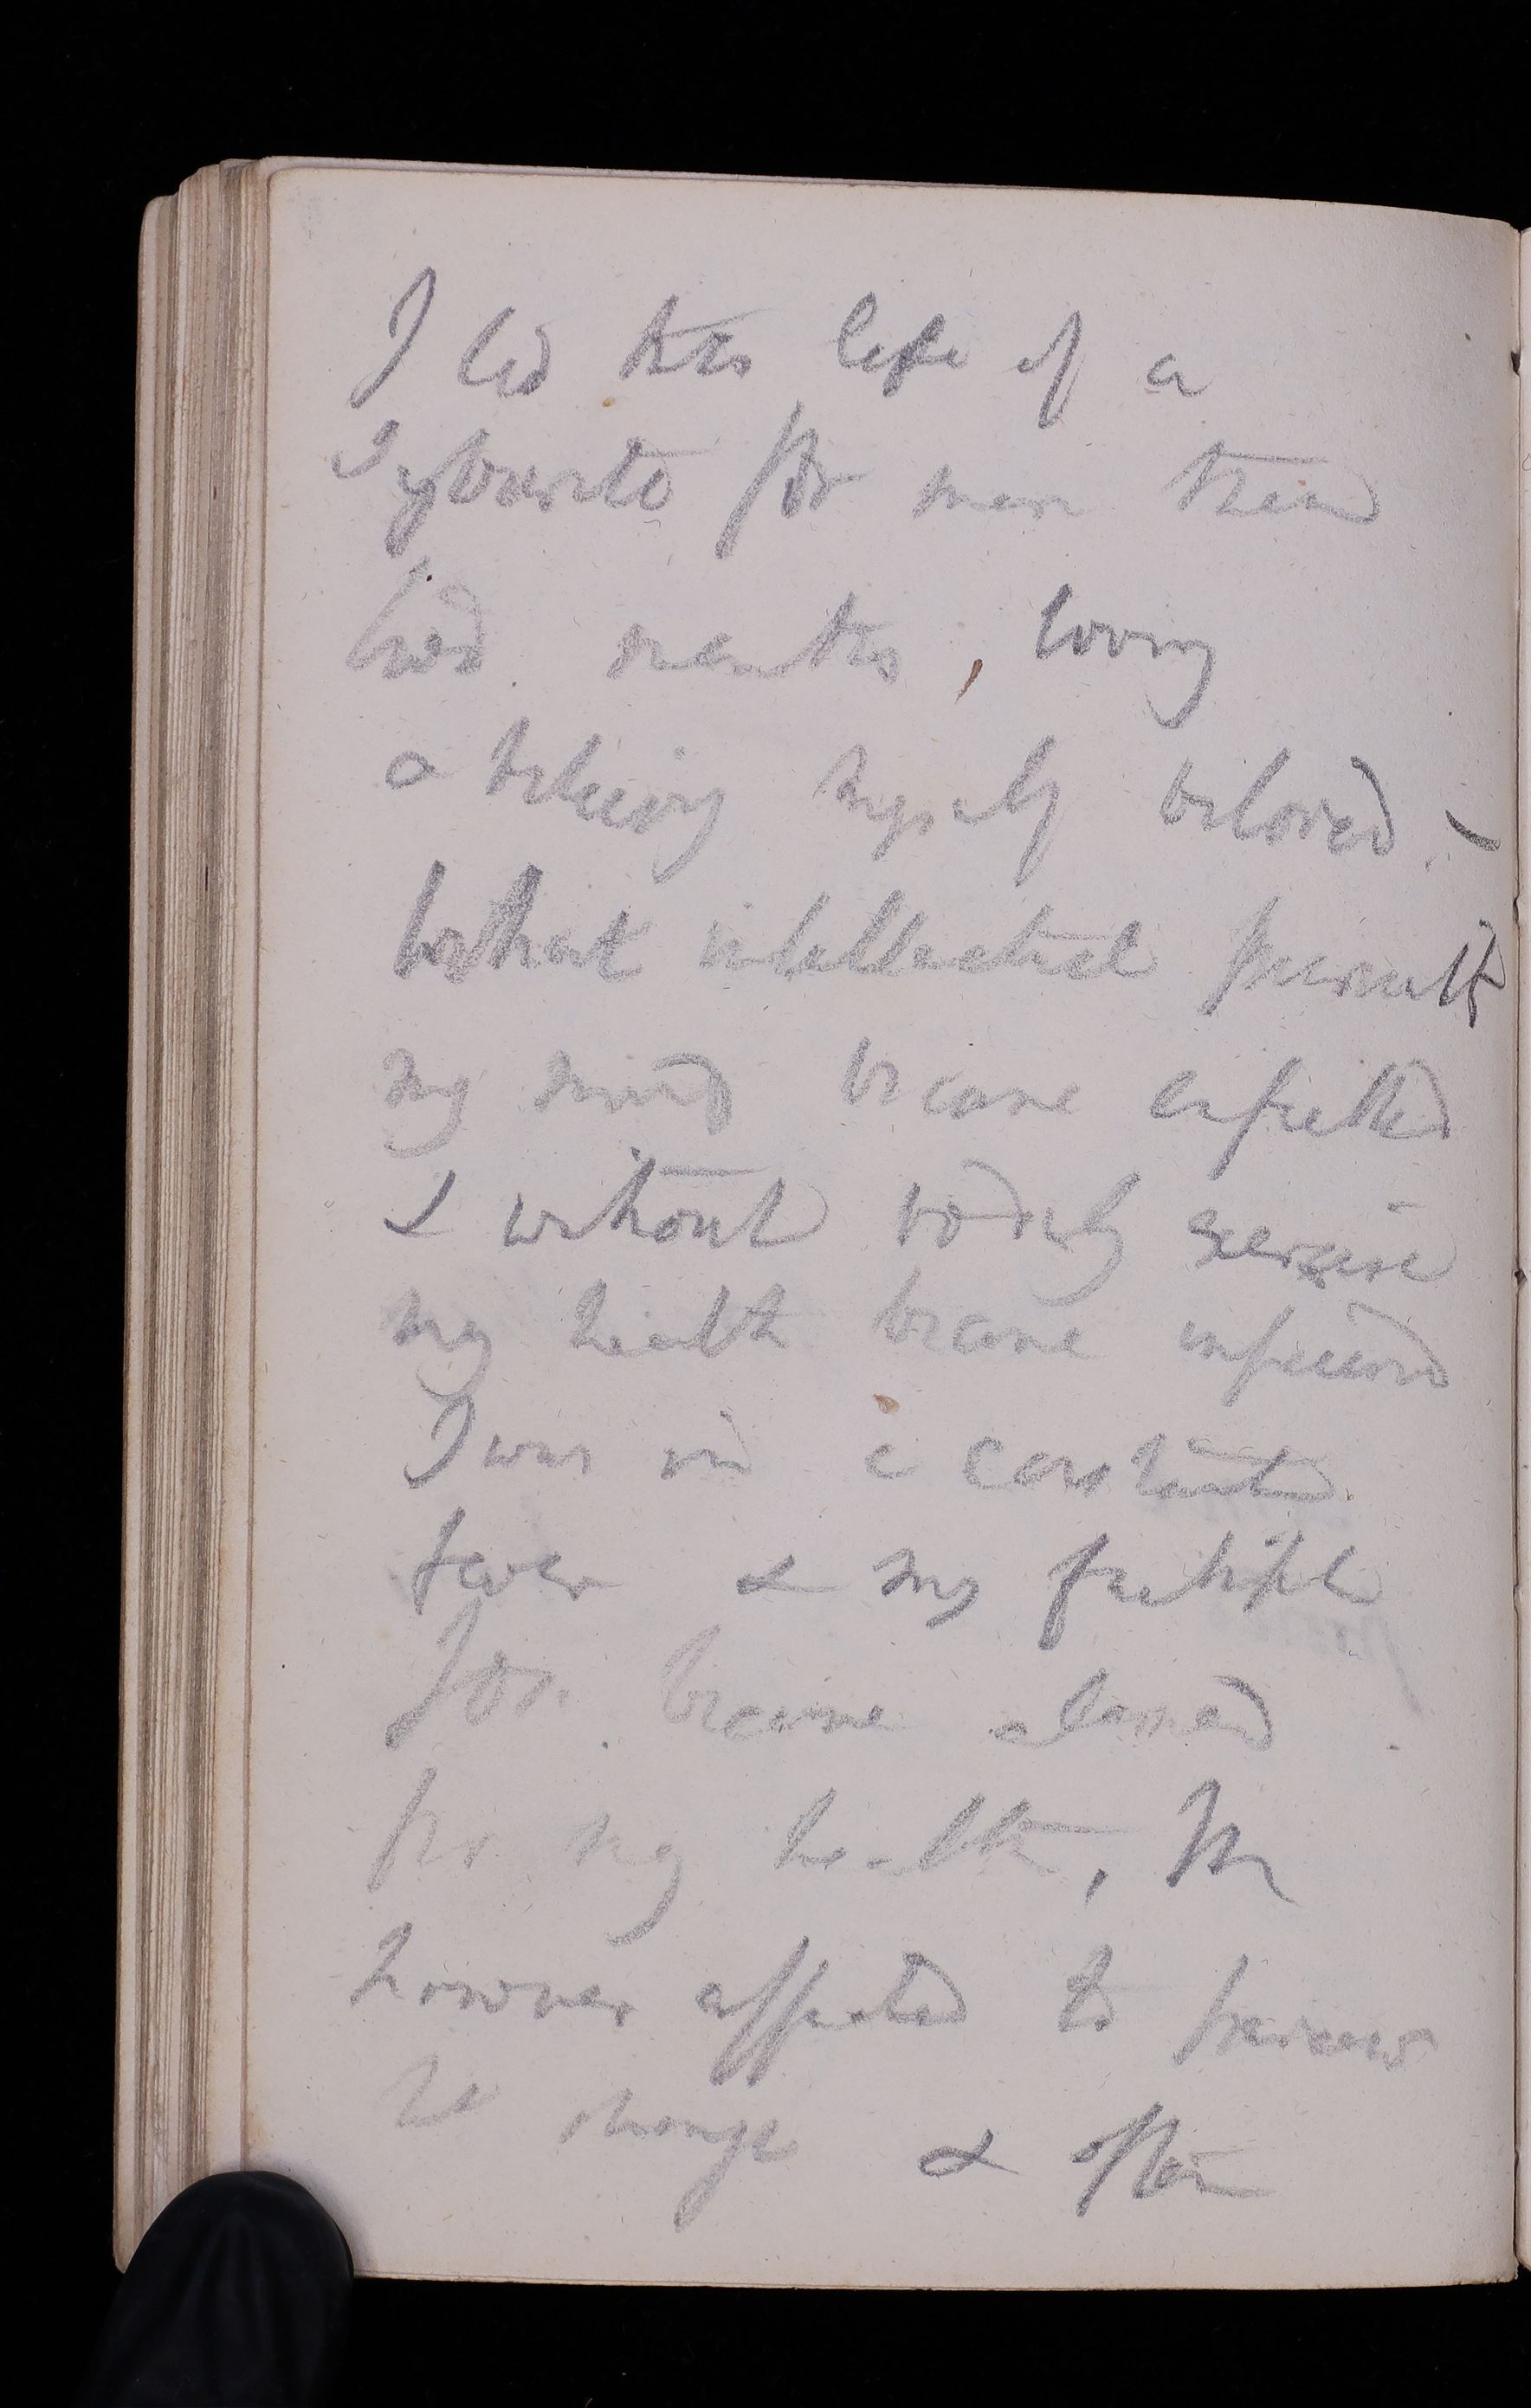 I led this life of a
Sybarite for more than
two months, loving
& believing myself beloved. –
Without intellectual pursuits
my mind became enfeebled
& without bodily exercise
my health became impaired
I was in a constant
fever & my faithful
Jos. became alarmed
for my health, He
however affected to perceive
no change & often